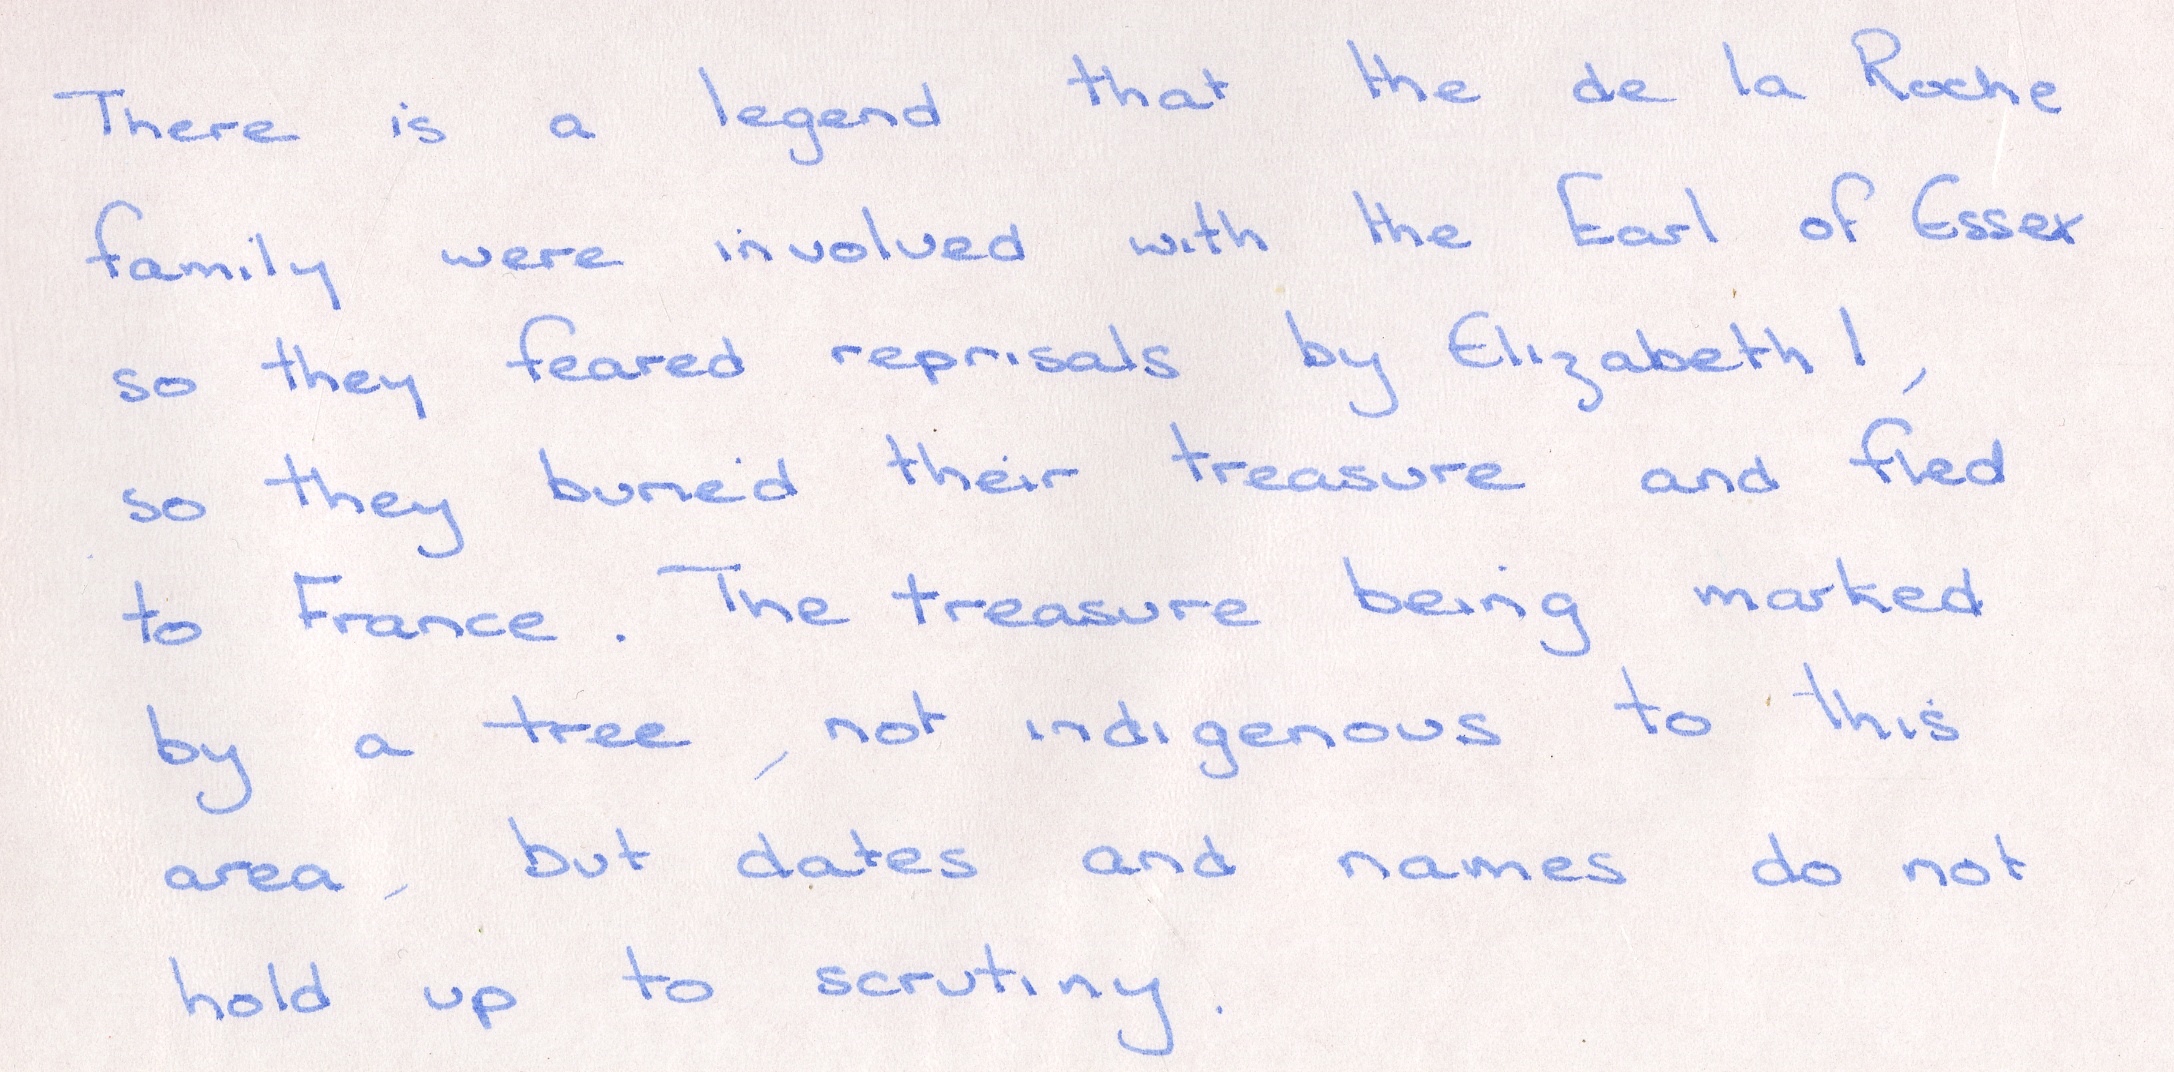 There is a legend that the de la Roche
family were involved with the Earl of Essex
so they feared reprisals by Elizabeth I,
so they buried their treasure and fled
to France. The treasure being marked
by a tree, not indigenous to this
area, but dates and names do not
hold up to scrutiny.